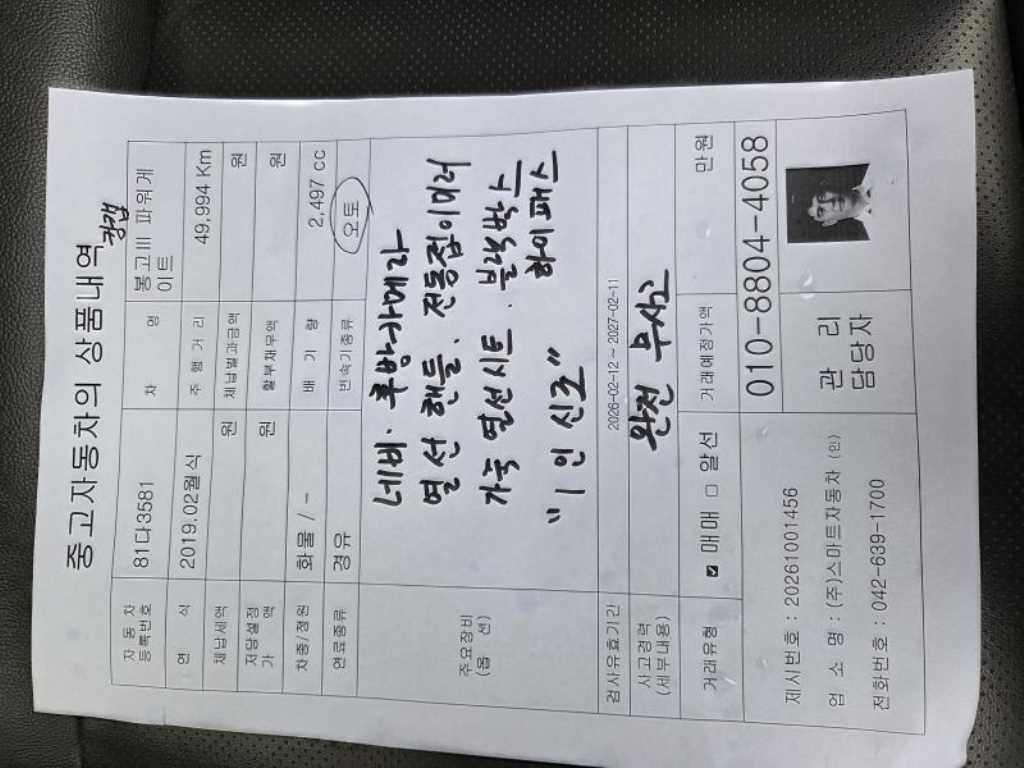 중고자동차의 상품내역
자동차등록번호 81다3581 차명 봉고III 파워게이트 킹캡
연식 2019.02월식 주행거리 49,994 Km
체납세액 원 체납벌과금액 원
저당설정가액 원 할부채무액 원
차종/정원 화물 / - 배기량 2,497 cc
연료종류 경유 변속기종류 오토
주요장비(옵션)
네비. 후방카메라
열선 핸들. 전동접이미러
가죽 열선시트. 블랙박스
"1인 신조" 하이패스
검사유효기간 2026-02-12 ~ 2027-02-11
사고경력(세부내용) 완전 무사고
거래유형 ☑ 매매 □ 알선 거래예정가액 만원
제시번호 : 20261001456 010-8804-4058
업 소 명 : (주)스마트자동차 (인) 관리담당자
전화번호 : 042-639-1700